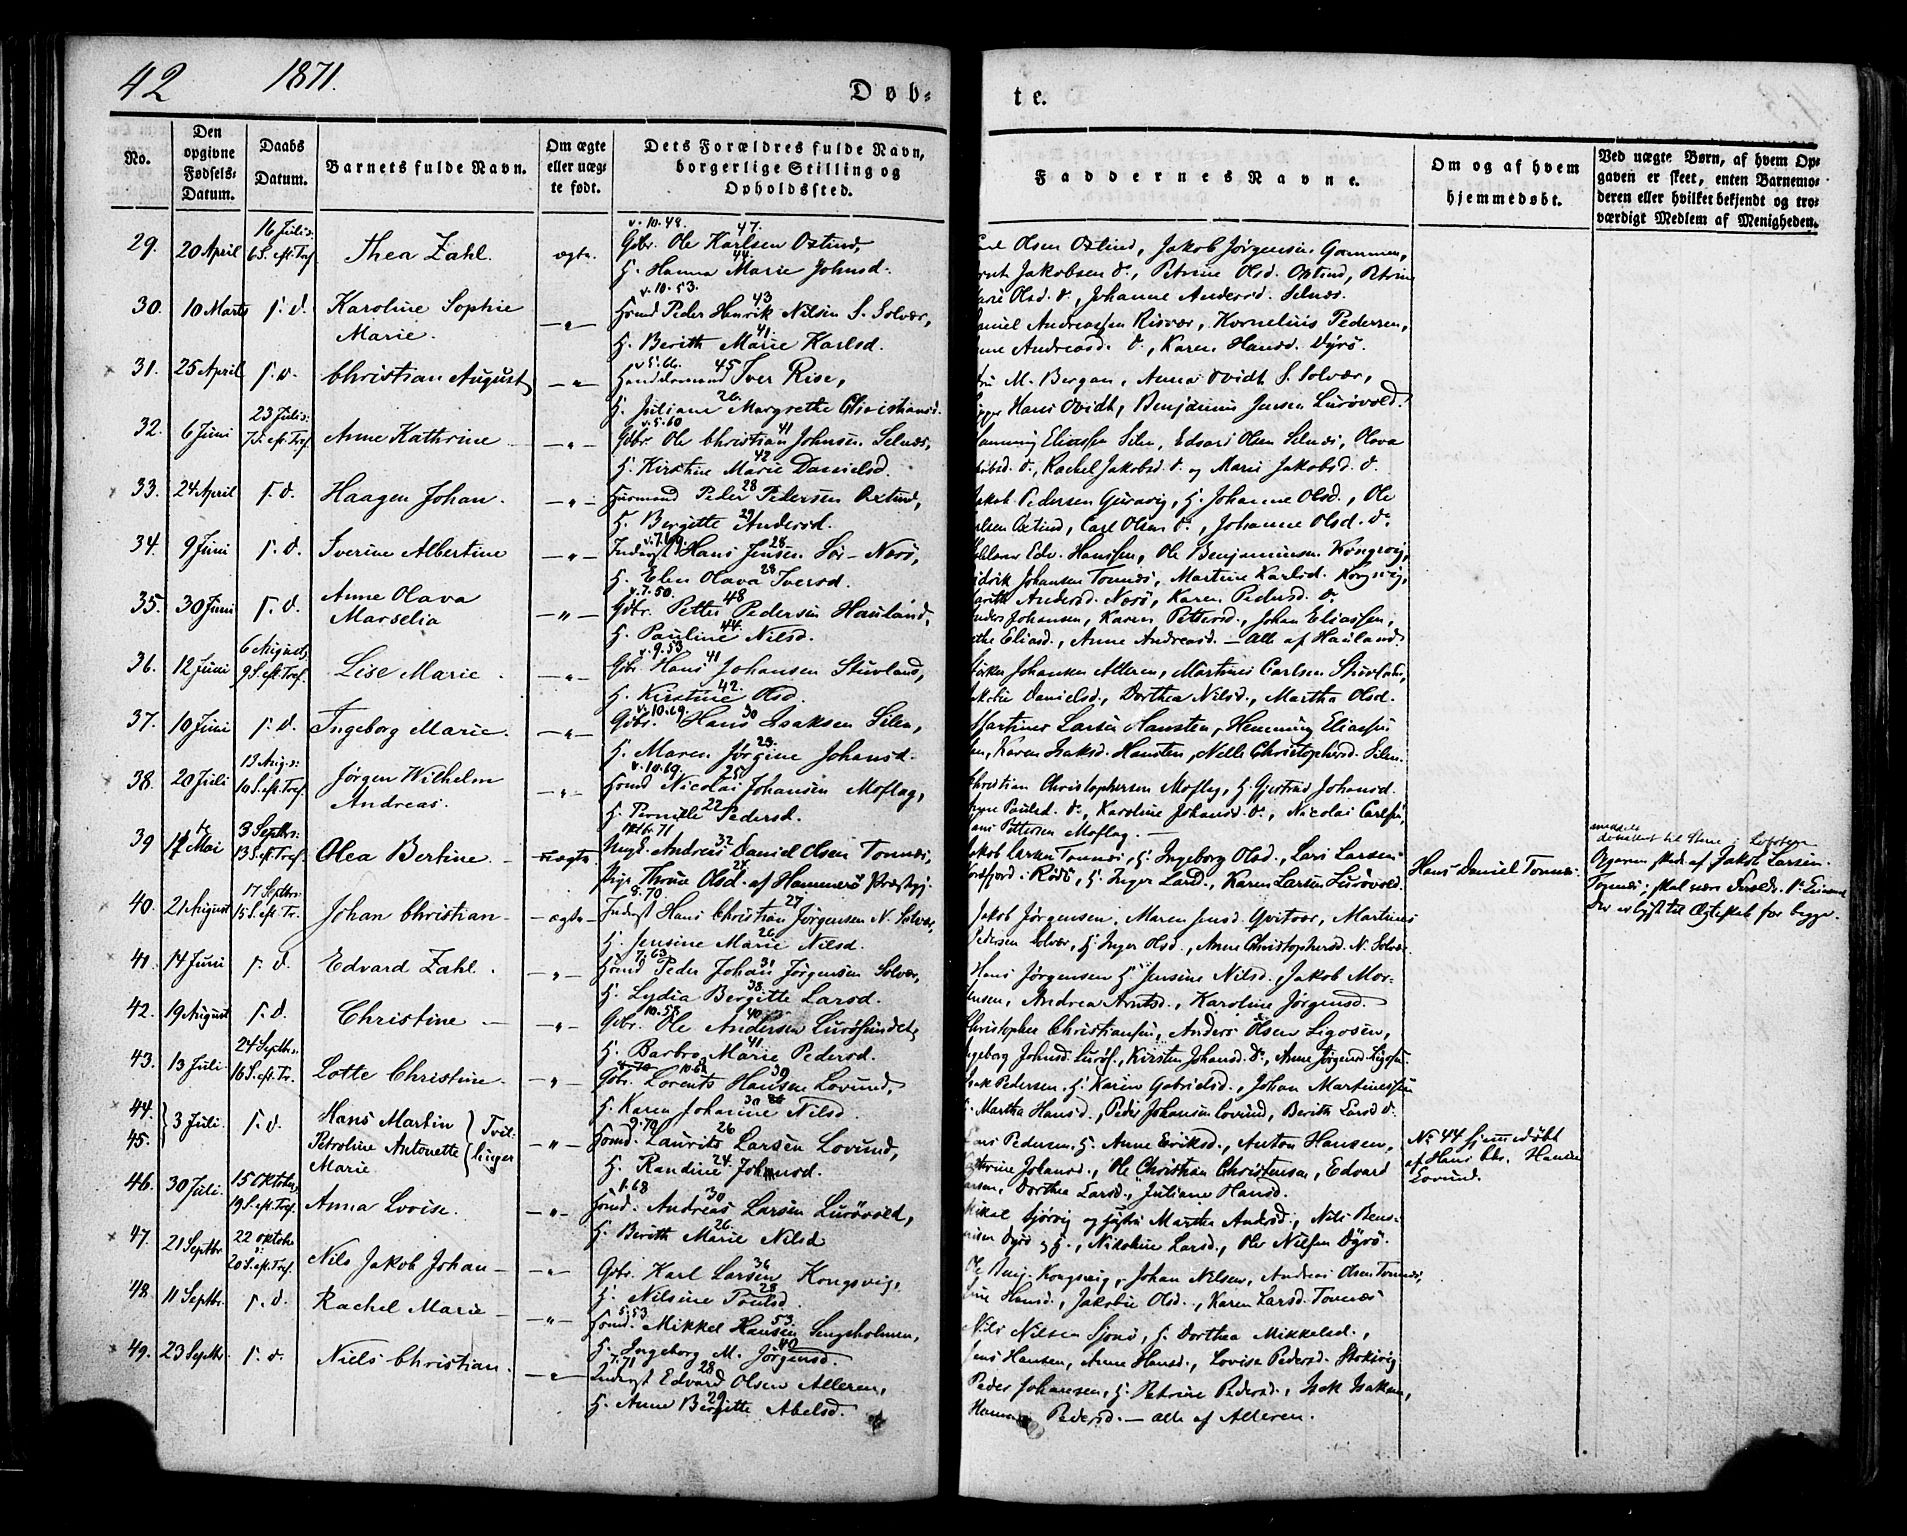 42 1871.
Døb-
te.
No.
Den opgivne Fødsels-Datum.
Daabs Datum.
Barnets fulde Navn.
Om ægte eller uægte født.
Dets Forældres fulde Navn, borgerlige Stilling og Opholdssted.
Faddernes Navne.
Om og af hvem hjemmedøbt.
Ved uægte Børn, af hvem Opgaven er skeet, enten Barnemoderen eller hvilket bekjendt og troværdigt Medlem af Menigheden.
29. 20 April 16 Juli 6 S. eft. Tref. Thea Zahl. ægte.
v. 10. 49. 47.
Gbr. Ole Karlsen Oxtind,
44.
H. Hanna Marie Johnsd.
Olsen Oxtind, Jakob Jørgensen Gammen,
Jakobsen do., Petrine Olsd. Oxtind, Petrin
Olsd. do., Johanne Andersd. Selnæs.
30. 10 Marts s. d. Karoline Sophie
Marie. — " —
v. 10. 53. 43
Huusmd Peder Henrik Nilsen S. Solvær,
41.
H. Berith Marie Karlsd.
Andreassen Risvær, Kornelius Pedersen,
Andreasd. do., Karen Hansd. Dyrø.
31. 25 April s. d. Christian August — " —
v 5. 66. 45
Handelsmand Iver Rise,
26.
H. Juliane Margrethe Christiansd.
M. Bergan, Anna Qvidt S. Solvær,
Hans Qvidt, Benjamin Jensen Lurøvold.
32. 6 Juni 23 Juli 7 S. eft. Tref. Anne Kathrine — " —
v. 5. 60 41
Gbr. Ole Christian Johnsen Selnæs,
42
H. Kirstine Marie Danielsd.
Eliassen Silen, Edvard Olsen Selnæs, Olava
do., Rachel Jakobsd. do. og Marie Jakobsd. do.
33. 24 April s. d. Haagen Johan. — " —
28
Husmand Peder Pedersen Oxtind,
29
H. Bergitte Andersd.
Jakob Pedersen Gjervig, H. Johanne Olsd., Ole
Oxtind, Carl Olsen do., Johanne Olsd. do.
34. 9 Juni s. d. Iverine Albertine — " —
v. 7. 69. 28
Inderst Hans Jensen Sør-Næsø,
28
H. Elen Olava Iversd.
Edv. Hanssen, Ole Benjaminsen Kongsvig,
Johansen Tonnæs, Martine Karlsd. Kongsvig,
Andersd. Næsø, Karen Pedersd. do.
35. 30 Juni s. d. Anne Olava
Marselia — " —
v. 7. 50. 48
Gbr. Petter Pedersen Hauland,
44.
H. Pauline Nilsd.
Johansen, Karen Pettersd., Johan Eliassen,
Eliasd., Anne Andreasd. — Alle af Hauland.
36. 12 Juni 6 August 9 S. eft. Tref. Lise Marie. — " —
v. 9. 53 41
Gbr. Hans Johansen Stuvland,
42.
H. Kirstine Olsd.
Johansen Alleren, Martines Carlsen Stuvland,
Danielsd, Dorthea Nilsd., Martha Olsd.
37. 10 Juni s. d. Ingeborg Marie. — " —
v. 10. 69. 30
Gbr. Hans Isaksen Silen,
29.
H. Maren Jørgine Johansd.
Martiner Larsen Hansten, Hemming Eliassen
Karen Isaksd. Hansten, Nelle Christophersd. Silen.
38. 20 Juli 13 Aug. 10 S. eft. Tref. Jørgen Wilhelm
Andreas. — " —
v. 10. 69. 25
Huusmd Nicolai Johansen Moflag,
22
H. Pernille Pedersd.
Christian Christophersen Moflag, H. Gjertrud Johansd.
Paulsd. do., Karoline Johansd. do., Nicolai Carlsen,
Pettersen Moflag. —
39 12 Mai 3 Septbr. 13 S. eft. Tref. Olea Bertine. — uægte
32
Ungk. Andreas Daniel Olsen Tonnæs,
24
Pige Thrine Olsd. af Hammerø Præstgj.
Jakob Larsen Tonnæs, H. Ingeborg Olsd., Lars Larsen
Rødø, H. Inger Larsd., Karen Larsen Lurøvold.
Hans Daniel Tonnæs.
Opgaven skede af Jakob Larsen
Tonnæs; skal være Forældr.
Der er lyst til Ægteskab for begge.
40. 21 August 17 Septbr. 15 S. eft. Tr. Johan Christian — ægte —
8. 70 27
Inderst Hans Christian Jørgensen N. Solvær,
26
H. Jensine Marie Nilsd.
Jakob Jørgensen. Maren Jensd. Qvitvær, Martines
Pedersen Solvær, H. Inger Olsd., Anne Christophersd. N. Solvær.
41. 14 Juni s. d. Edvard Zahl. — " —
7. 63 31
Huusmd Peder Johan Jørgensen Solvær,
38.
H. Lydia Bergitte Larsd.
Hans Jørgensen H. Jensine Nilsd., Jakob Mor-
tensen, Andrea Arntsd., Karoline Jørgensd.
42. 19 August s. d. Christine — — " —
10. 55 40
Gbr. Ole Andersen Lurøsundet,
41
H. Barbro Marie Pedersd.
Christopher Christiansen, Anders Olsen Ligosen,
Ingeborg Johnsd. Lurøs., Kirsten Johansd. do., Anne Jørgensd. Ligosen.
43. 13 Juli 24 Septbr. 16 S. eft. Tr. Lotte Christine. — " —
39
Gbr. Lorents Hansen Lovund,
30
H. Karen Johanne Nilsd.
Isak Pedersen, H. Karen Gabrielsd., Johan Martinussen
H. Martha Hansd., Peder Johansen Lovund, Berith Larsd. do.
44. 45. 3 Juli. s. d. Hans Martin
Petroline Antonette
Marie
Tvillinger — " —
9. 70 26
Huusmd. Laurits Larsen Lovund,
24.
H. Randine Johansd.
Lars Pedersen, H. Anne Eriksd., Anton Hansen,
Johansd., Ole Christian Christensen, Edvard
Larsen, Dorthea Larsd., Juliane Hansd.
No. 44 hjemmedøbt
af Hans Chr. Hansen
Lovund.
46. 30 Juli. 15 Oktober 19 S. eft. Tref. Anna Lovise. — " —
1. 68 30
Huusmd. Andreas Larsen Lurøvold,
26.
H. Berith Marie Nilsd
Mikal Sjørvig og Hustru Martha Andersd., Nils Bens-
Dyrø og H., Nikoline Larsd., Ole Nilsen Dyrø.
47. 21 Septbr. 22 Oktober 20 S. eft. Tref. Nils Jakob Johan — — " —
36
Gbr. Karl Larsen Kongsvig,
28
H. Nilsine Poulsd.
Ole Benj. Kongsvig, Johan Nilsen, Andreas Olsen Tonnæs,
Hansd., Jakobie Olsd., Karen Larsd. Tonnæs
48. 11 Septbr. s. d. Rachel Marie — — " —
5. 53 53.
Huusmd. Mikkel Hansen Sengsholmen,
40
H. Ingeborg M. Jørgensd.
Nils Nilsen Sjonø, H. Dorthea Mikkelsd.,
Jens Hansen, Anne Hansd., Lovise Pedersd. Stoksvig
49. 23 Septbr. s. d. Niels Christian. — " —
7. 71 28
Inderst Edvard Olsen Alleren,
29
H. Anne Bergitte Abelsd.
Peder Johansen, H. Petrine Pedersd., Isak Isaksen,
Pedersd. — alle af Alleren.